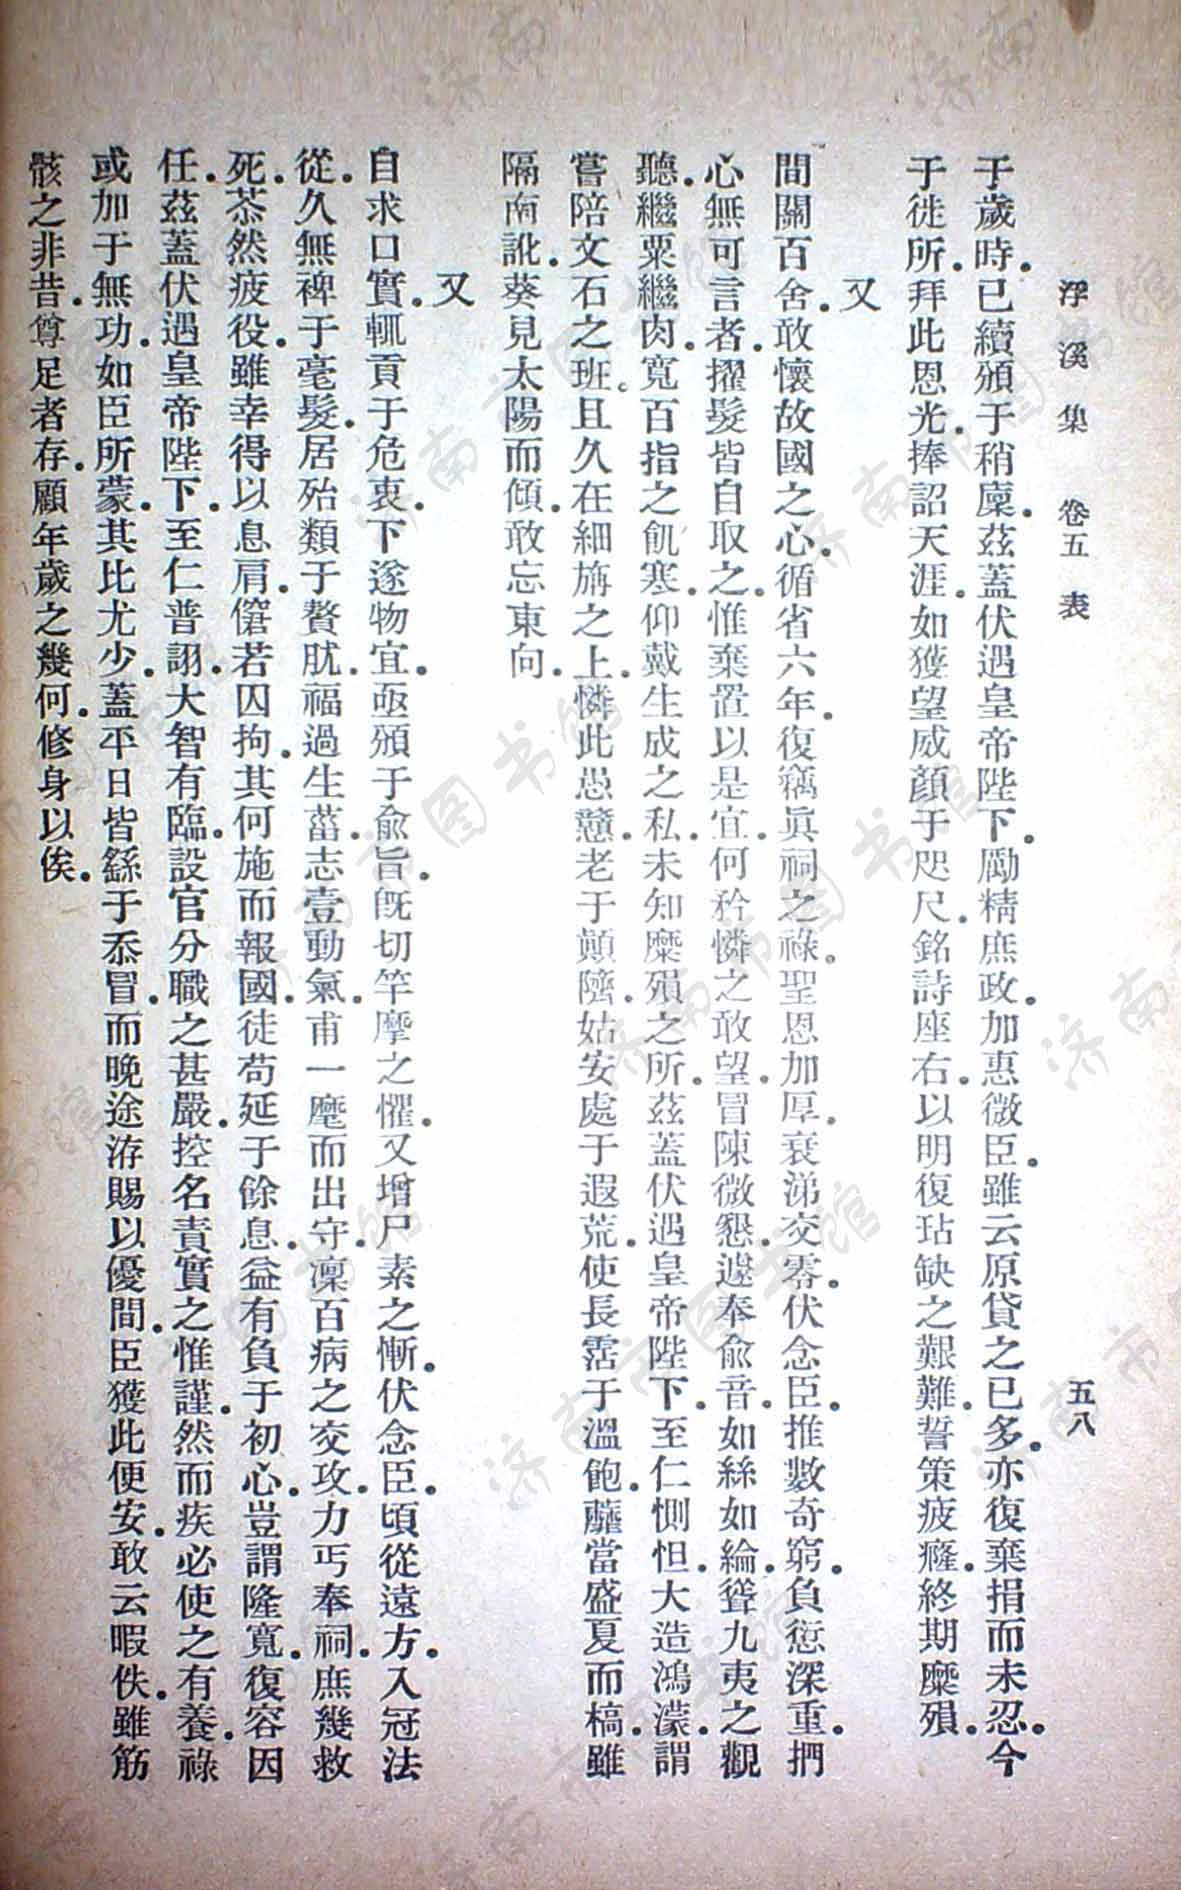 浮溪集 卷五 表 五八
于歲時。已續頒于稍廩。茲蓋伏遇皇帝陛下。勵精庶政。加惠微臣。雖云原貸之已多。亦復棄捐而未忍。今
于徙所。拜此恩光。捧詔天涯。如獲望威顏于咫尺。銘詩座右。以明復玷缺之艱難。誓策疲癃。終期糜殞。
又
間關百舍。敢懷故國之心。循省六年。復竊眞祠之祿。聖恩加厚。衰涕交零。伏念臣。推數奇窮。負愆深重。捫
心無可言者。擢髮皆自取之。惟棄置以是宜。何矜憐之敢望。冒陳微懇。遽奉俞音。如絲如綸。聳九夷之觀
聽。繼粟繼肉。寬百指之飢寒。仰戴生成之私。未知糜殞之所。茲蓋伏遇皇帝陛下。至仁惻怛。大造鴻濛。謂
嘗陪文石之班。且久在細旃之上。憐此愚戇。老于顛隮。姑安處于遐荒。使長霑于溫飽。蘼當盛夏而槁。雖
隔南訛。葵見太陽而傾。敢忘東向。
又
自求口實。輒貢于危衷。下遂物宜。亟頒于俞旨。既切竿摩之懼。又增尸素之慚。伏念臣。頃從遠方。入冠法
從。久無裨于毫髮。居殆類于贅肬。福過生菑。志壹動氣。甫一麾而出守。凜百病之交攻。力丐奉祠。庶幾救
死。苶然疲役。雖幸得以息肩。僒若囚拘。其何施而報國。徒苟延于餘息。益有負于初心。豈謂隆寬。復容因
任。茲蓋伏遇皇帝陛下。至仁普詡。大智有臨。設官分職之甚嚴。控名責實之惟謹。然而疾必使之有養。祿
或加于無功。如臣所蒙。其比尤少。蓋平日皆繇于忝冒。而晚途洊賜以優閒。臣獲此便安。敢云暇佚。雖筋
骸之非昔。尊足者存。顧年歲之幾何。修身以俟。